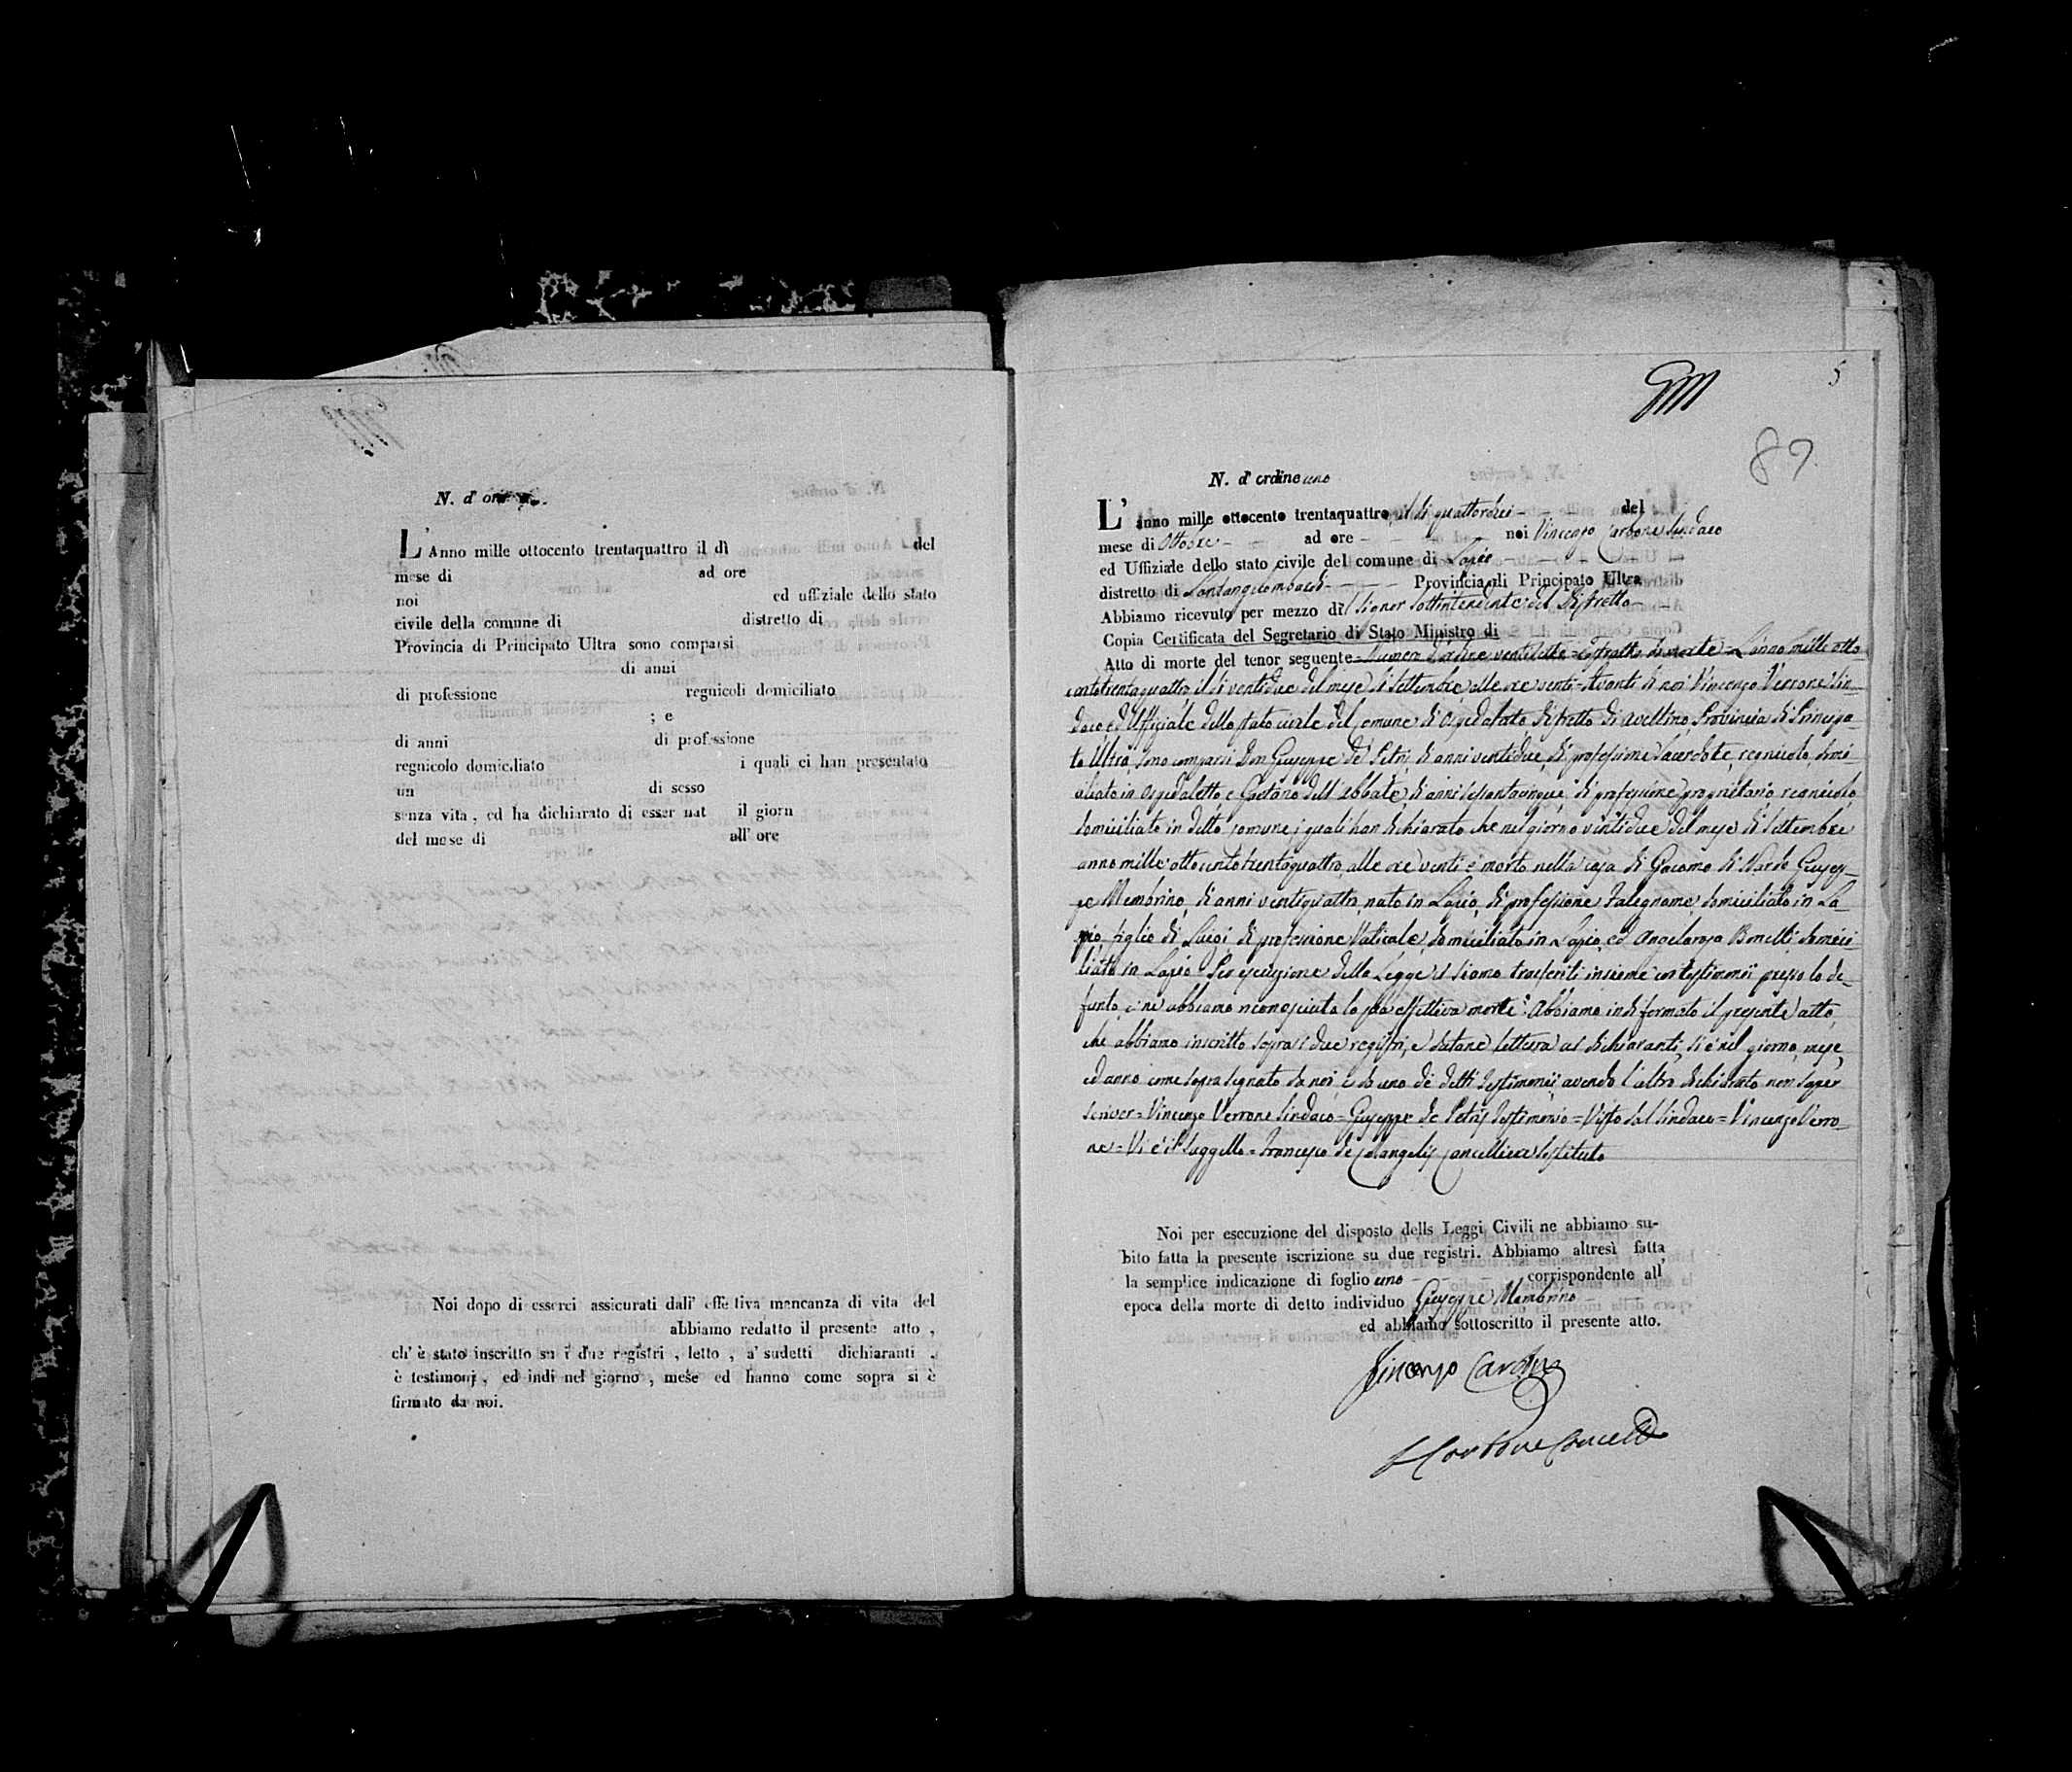 N. d'
L'Anno mille ottocento trentaquattro il dì del
mese di ad ore
noi ed uffiziale dello stato
civile della comune di distretto di
Provincia di Principato Ultra sono comparsi
di anni
di professione regnicoli domiciliato
; e
di anni di professione
regnicolo domiciliato i quali ci han presentato
un di sesso
senza vita, ed ha dichiarato di esser nat il giorn
del mese di all' ore
Noi dopo di esserci assicurati dall' effettiva mancanza di vita del
abbiamo redatto il presente atto,
ch'è stato inscritto su i due registri, letto, a' sudetti dichiaranti,
è testimonj, ed indi nel giorno, mese ed hanno come sopra si è
firmato da noi.
5
89
N. d'ordine uno
L'anno mille ottocento trentaquattro il di quattordici del
mese di Ottobre ad ore noi Vincenzo Carbone Sindaco
ed Uffiziale dello stato civile del comune di Lapio
distretto di Santangelombardi Provincia di Principato Ultra
Abbiamo ricevuto per mezzo di l Signor Sottintendente del Distretto
Copia Certificata del Segretario di Stato Ministro di
Atto di morte del tenor seguente = Numero d'ordine ventisette = Estratto di morte = L'anno mille otto
centotrentaquattro il di ventidue del mese di Settembre alle ore venti = Avanti di noi Vincenzo Verrone Sin-
daco ed Uffiziale dello stato civile del Comune di Ospedaletto distretto di Avellino, Provincia di Principa-
to Ultra, sono comparsi Don Giuseppe de Petris di anni ventidue, di professione Sacerdote, regnicolo, domi-
ciliato in Ospedaletto, e Gaetano dell'Abbate, di anni sessantacinque, di professione proprietario, regnicolo,
domiciliato in detto comune, i quali han dichiarato che nel giorno ventidue del mese di Settembre
anno mille ottocento trentaquattro, alle ore venti è morto nella casa di Giacomo di Nardo Giusep-
pe Membrino, di anni ventiquattro, nato in Lapio, di professione Falegname, domiciliato in La-
pio, figlio di Luigi di professione Vaticale, domiciliato in Lapio, ed Angelarosa Bonelli domici-
liata in Lapio. Per esecuzione della Legge ci siamo trasferiti insieme coi testimonii presso lo de-
funto, e ne abbiamo riconosciuta la sua effettiva morte. Abbiamo indi formato il presente atto,
che abbiamo inscritto sopra i due registri, e datane lettura ai dichiaranti, si è nel giorno, mese,
ed anno come sopra segnato da noi, e da uno de' detti testimonii avendo l'altro dichiarato non saper
scriver = Vincenzo Verrone Sindaco = Giuseppe de Petris testimonio = Visto dal Sindaco = Vincenzo Verro-
ne = Vi è il Suggello = Francesco de Cancelliere Sostituto
Noi per esecuzione del disposto dells Leggi Civili ne abbiamo su-
bito fatta la presente iscrizione su due registri. Abbiamo altresì fatta
la semplice indicazione di foglio uno corrispondente all'
epoca della morte di detto individuo Giuseppe Membrino
ed abbiamo sottoscritto il presente atto.
Vincenzo Carbone